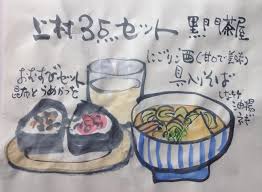 上村3点セット
黒門茶屋
にごり酒(甘口で美味)
具入りそば
おむすびセット
昆布とうめかつを
油揚
ネギ